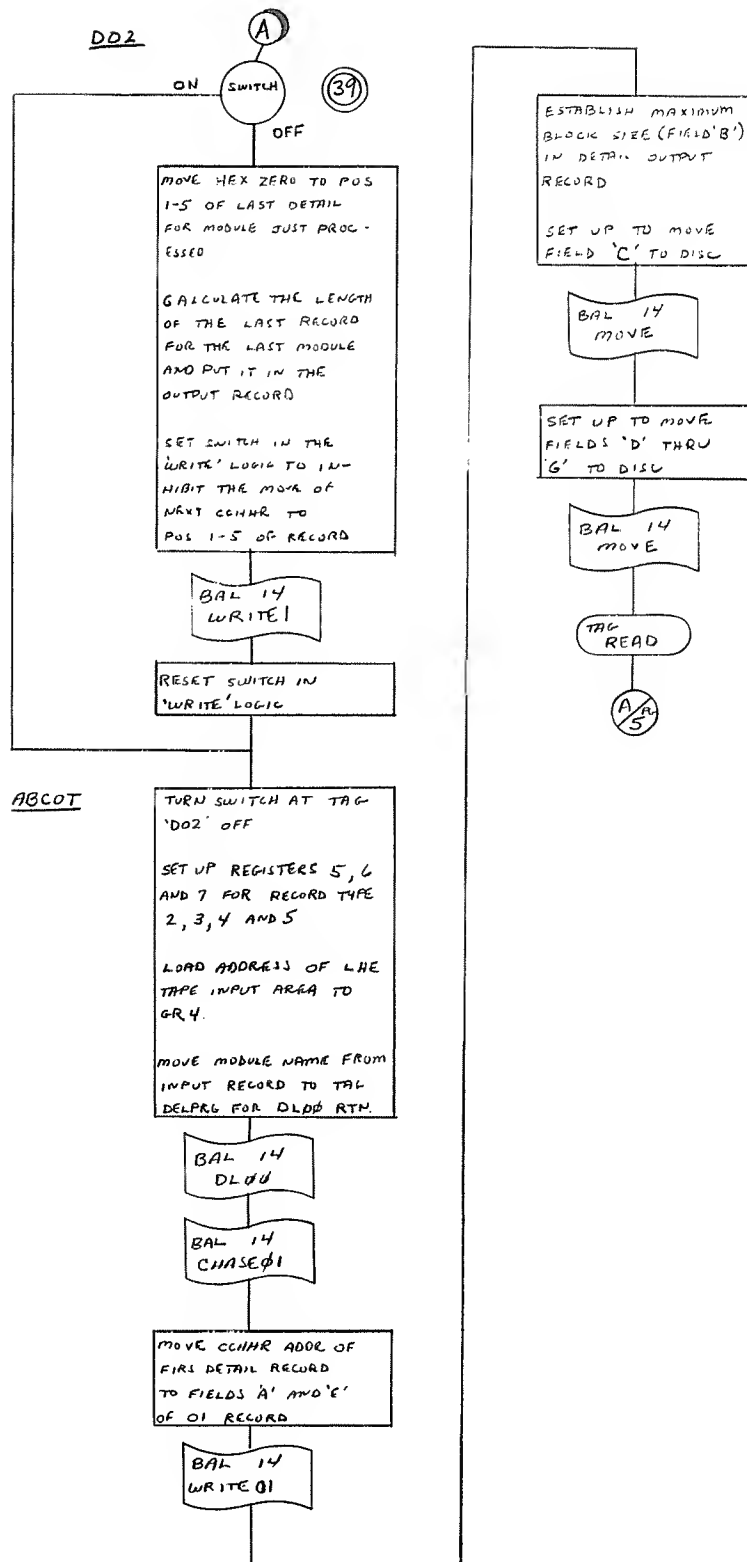 DO2
A
ON
SWITCH
39
OFF
MOVE HEX ZERO TO POS
1-5 OF LAST DETAIL
FOR MODULE JUST PROC-
ESSED
CALCULATE THE LENGTH
OF THE LAST RECORD
FOR THE LAST MODULE
AND PUT IT IN THE
OUTPUT RECORD
SET SWITCH IN THE
'WRITE' LOGIC TO IN-
HIBIT THE MOVE OF
NEXT CCHHR TO
POS 1-5 OF RECORD
BAL 14
WRITE1
RESET SWITCH IN
'WRITE' LOGIC
ABCOT
TURN SWITCH AT TAG
'DO2' OFF
SET UP REGISTERS 5, 6
AND 7 FOR RECORD TYPE
2, 3, 4 AND 5
LOAD ADDRESS OF LHE
TAPE INPUT AREA TO
GR 4.
MOVE MODULE NAME FROM
INPUT RECORD TO TAG
DELPRG FOR DLDØ RTN.
BAL 14
DLØØ
BAL 14
CHASEØ1
MOVE CCHHR ADDR OF
FIRS DETAIL RECORD
TO FIELDS 'A' AND 'E'
OF 01 RECORD
BAL 14
WRITE 01
ESTABLISH MAXIMUM
BLOCK SIZE (FIELD 'B')
IN DETAIL OUTPUT
RECORD
SET UP TO MOVE
FIELD 'C' TO DISC
BAL 14
MOVE
SET UP TO MOVE
FIELDS 'D' THRU
'G' TO DISC
BAL 14
MOVE
TAG
READ
A/PG
5